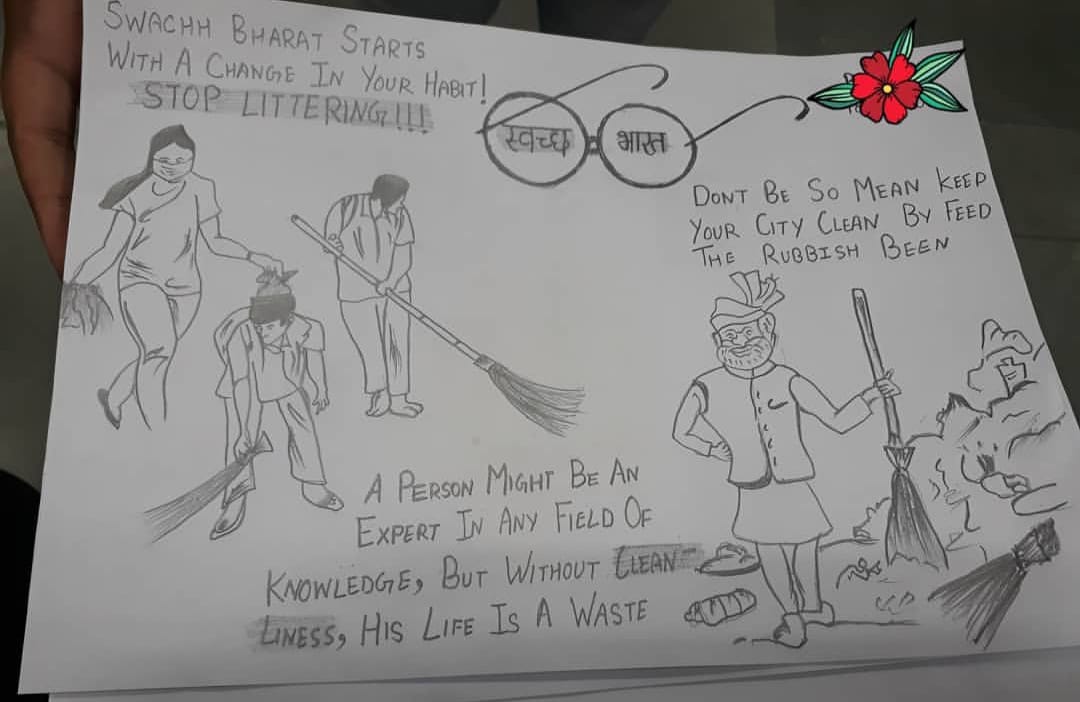 SWACHH BHARAT STARTS
WITH A CHANGE IN YOUR HABIT!
STOP LITTERING!!!
स्वच्छ भारत
DONT BE SO MEAN KEEP
YOUR CITY CLEAN BY FEED
THE RUBBISH BEEN
A PERSON MIGHT BE AN
EXPERT IN ANY FIELD OF
KNOWLEDGE, BUT WITHOUT CLEAN-
LINESS, HIS LIFE IS A WASTE